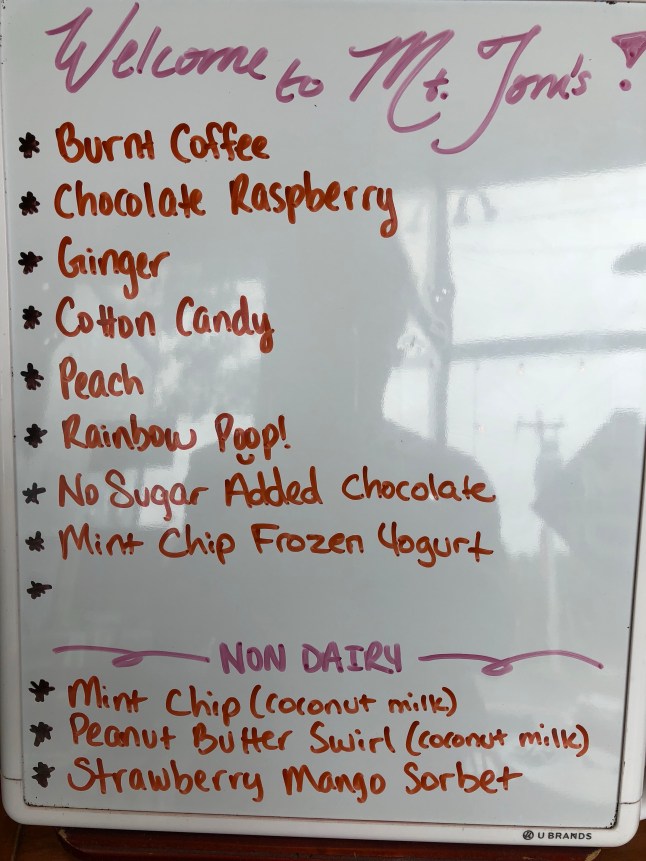 Welcome to Mt. Tom's!
* Burnt Coffee
* Chocolate Raspberry
* Ginger
* Cotton Candy
* Peach
* Rainbow Poop!
* No Sugar Added Chocolate
* Mint Chip Frozen Yogurt
*
NON DAIRY
* Mint Chip (coconut milk)
* Peanut Butter Swirl (coconut milk)
* Strawberry Mango Sorbet
U BRANDS